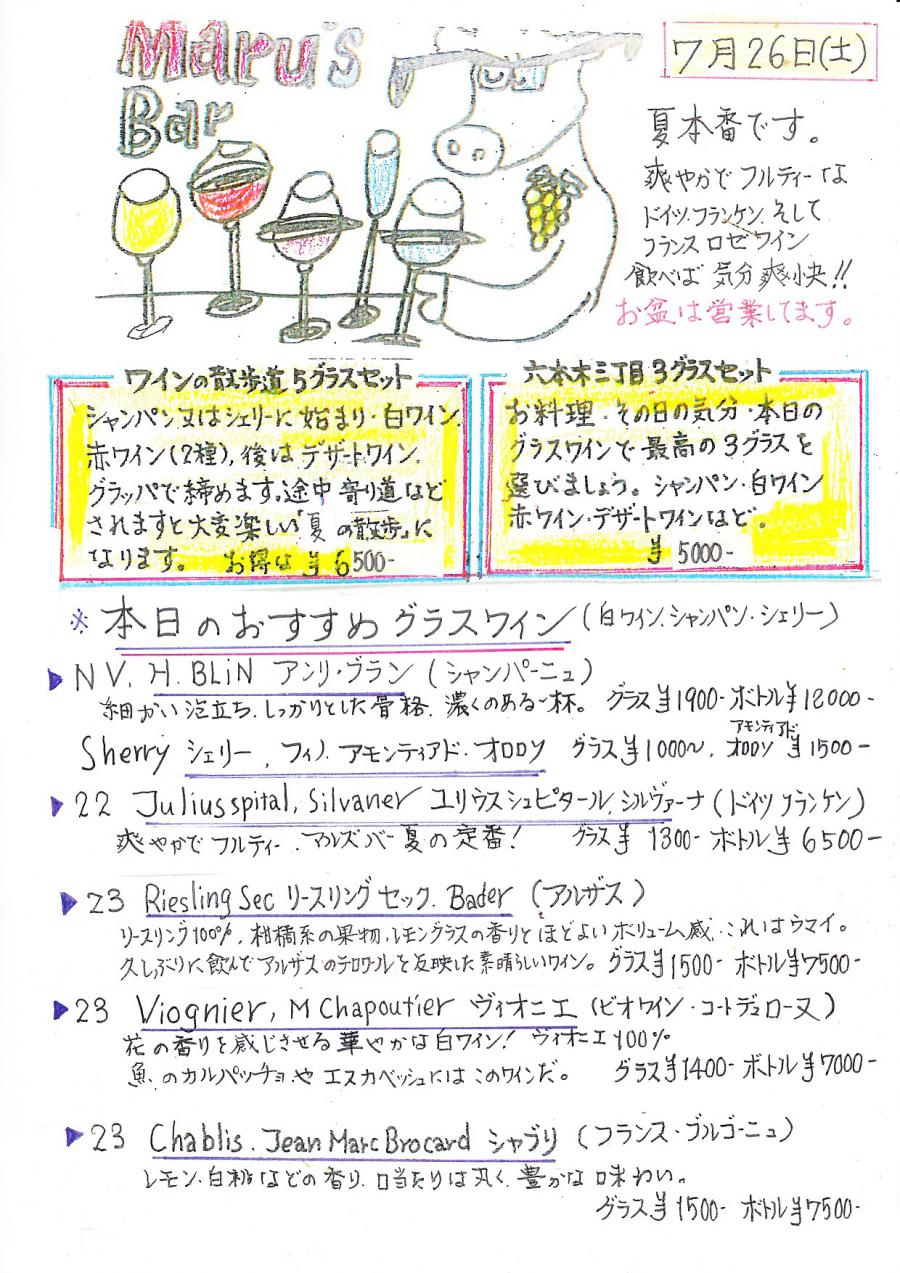 Maru's
Bar
7月26日(土)
夏本番です。
爽やかでフルティーな
ドイツ.フランケン.そして
フランス ロゼワイン
飲べば 気分爽快!!
お盆は営業してます。
ワインの散歩道5グラスセット
シャンパン又はシェリーに始まり・白ワイン.
赤ワイン(2種),後はデザートワイン.
グラッパで締めます。途中寄り道など
されますと大変楽しい「夏の散歩」に
なります。 お得な ¥6500-
六本木三丁目3グラスセット
お料理・その日の気分・本日の
グラスワインで最高の3グラスを
選びましょう。シャンパン・白ワイン
赤ワイン・デザートワインなど.
¥5000-
※本日のおすすめグラスワイン(白ワイン.シャンパン・シェリー)
▶NV. H.BLiN アンリ・ブラン(シャンパーニュ)
細かい泡立ち.しっかりとした骨格.濃くのある一杯。 グラス¥1900- ボトル¥12000-
Sherry シェリー,フィノ.アモンティアド・オロロソ グラス¥1000~. アモンティアド オロロソ ¥1500-
▶22 Juliusspital, Silvaner ユリウスシュピタール,シルヴァーナ(ドイツ フランケン)
爽やかでフルティー.マルズバー夏の定番! グラス¥1300- ボトル¥6500-
▶23 Riesling Sec リースリングセック. Bader (アルザス)
リースリング100%.柑橘系の果物,レモングラスの香りとほどよいボリューム感,これはウマイ。
久しぶりに飲んでアルザスのテロワールを反映した素晴らしいワイン。グラス¥1500- ボトル¥7500-
▶23 Viognier, M Chapoutier ヴィオニエ(ビオワイン・コートデュローヌ)
花の香りを感じさせる華やかな白ワイン! ヴィオニエ100%
魚のカルパッチョや エスカベッシュにはこのワインだ。 グラス¥1400- ボトル¥7000-
▶23 Chablis. Jean Marc Brocard シャブリ(フランス・ブルゴーニュ)
レモン.白桃などの香り.口当たりは丸く.豊かな味わい。
グラス¥1500- ボトル¥7500-